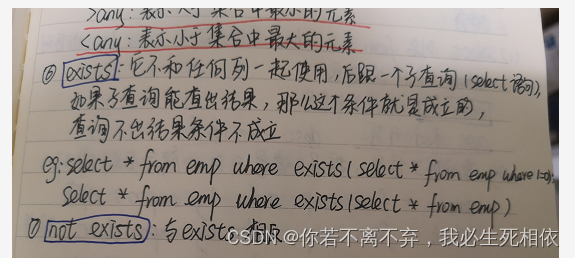 >any: 表示大于集合中最小的元素
<any: 表示小于集合中最大的元素
⑥ exists: 它不和任何列一起使用,后跟一个子查询(select语句),
如果子查询能查出结果,那么这个条件就是成立的,
查询不出结果条件不成立
eg: select * from emp where exists(select * from emp where 1=0);
select * from emp where exists(select * from emp)
⑦ not exists: 与exists相反
CSDN @你若不离不弃,我必生死相依